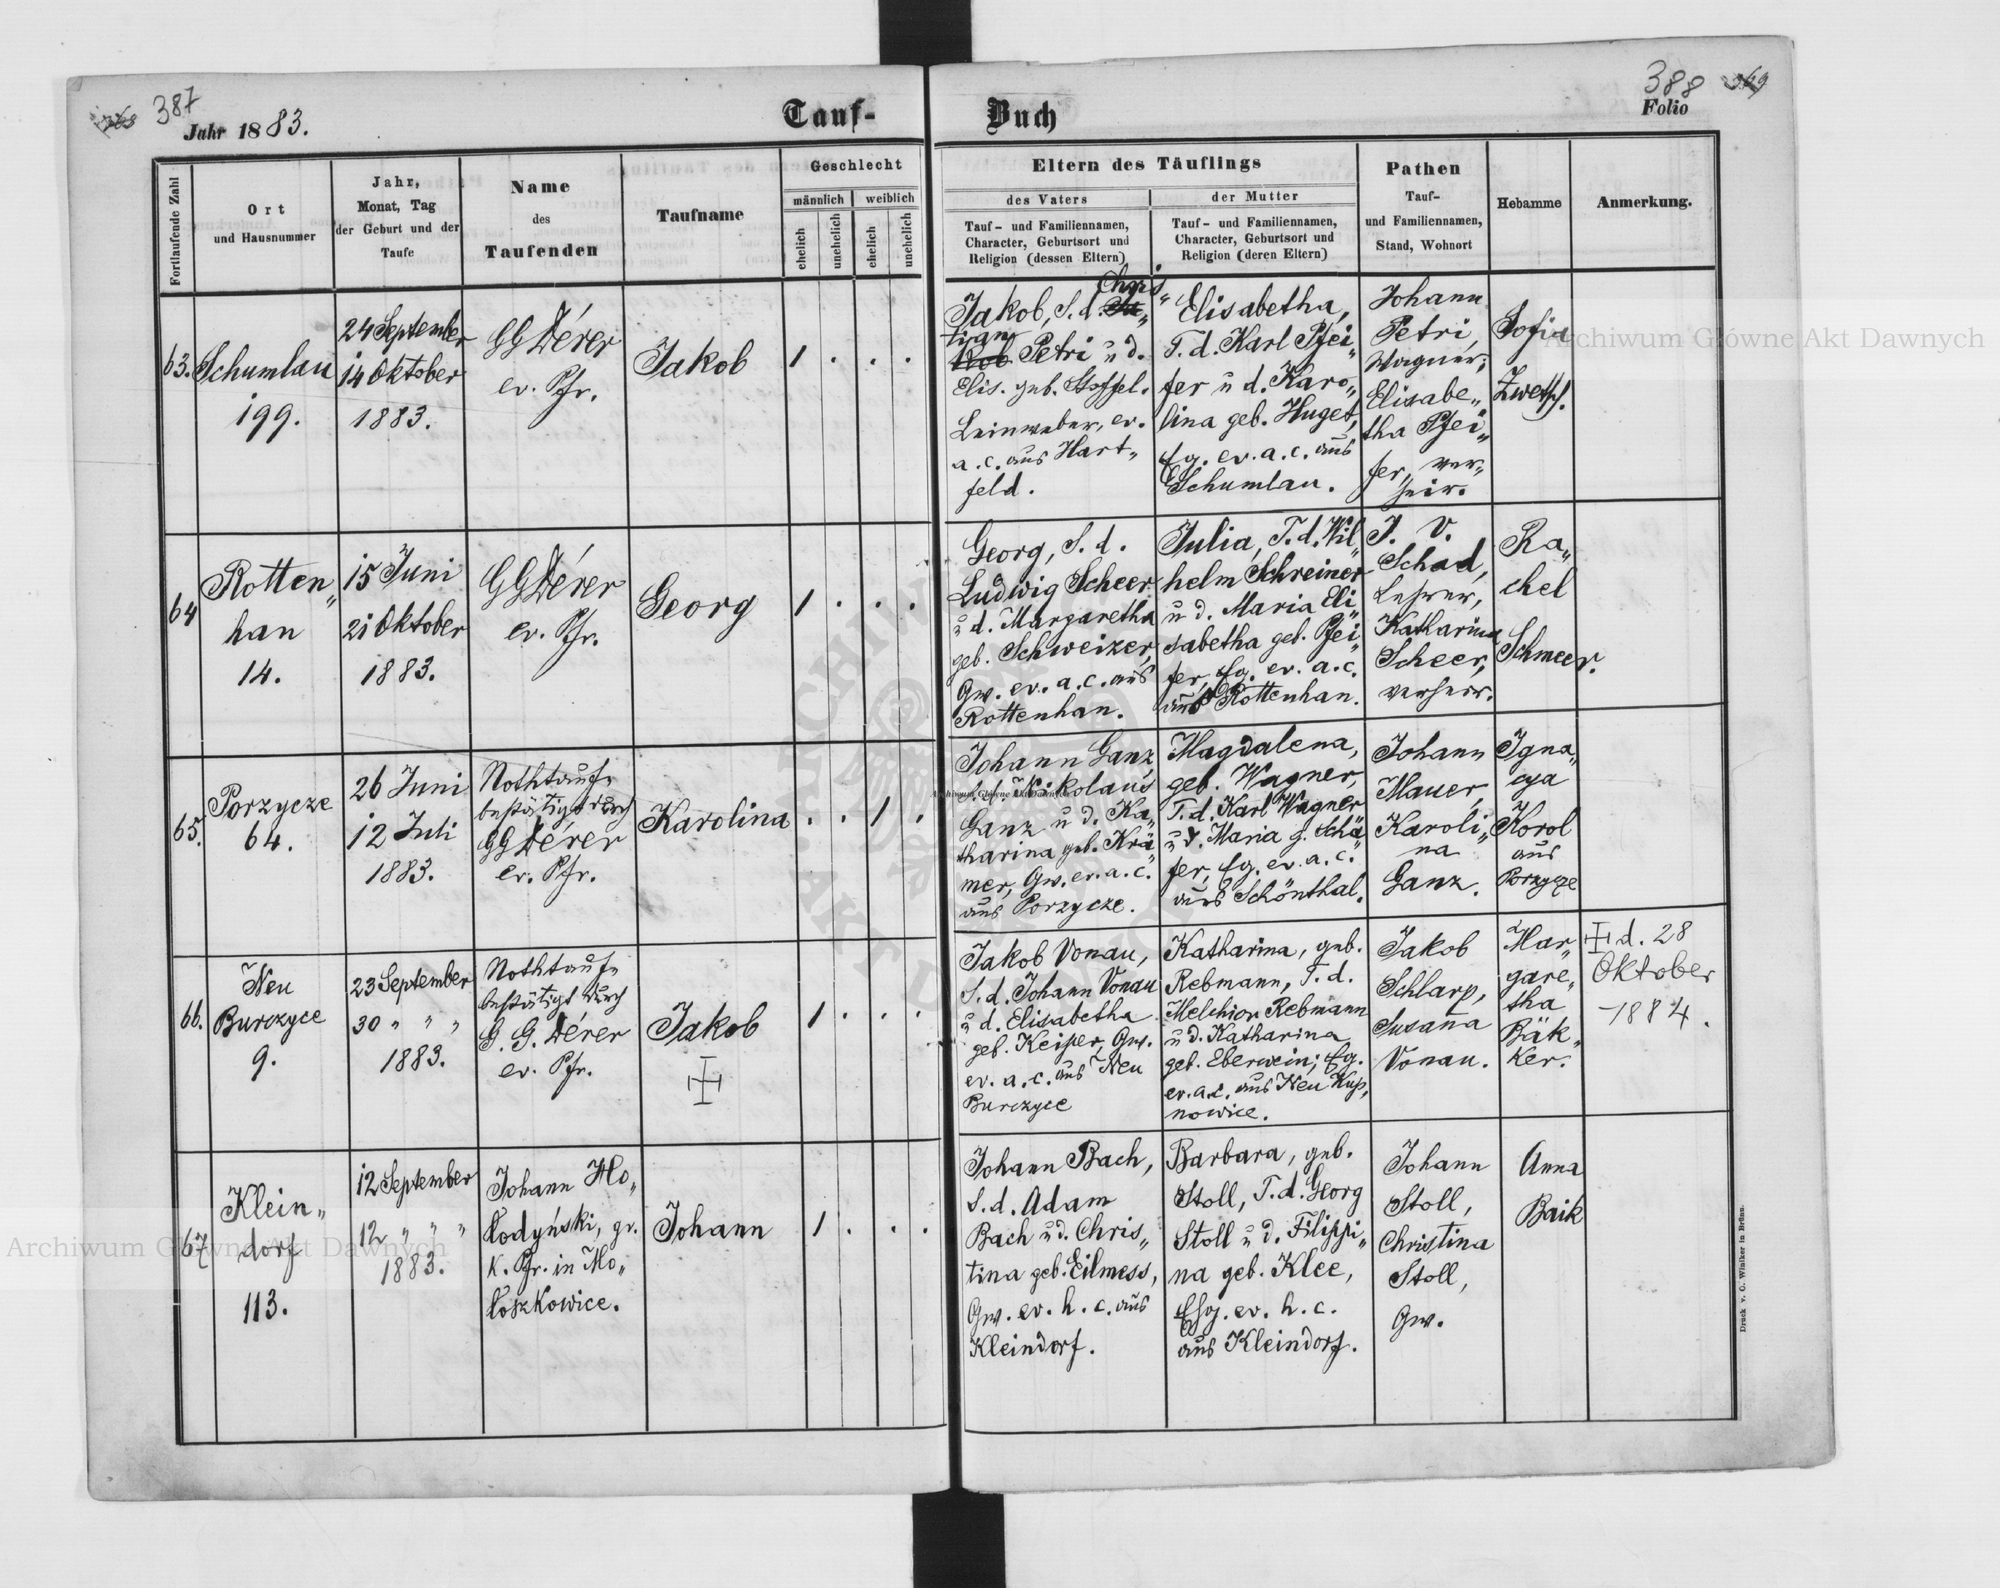 387
388
Jahr 1883.
Tauf-
Buch
Folio
Fortlaufende Zahl
Ort
und Hausnummer
Jahr,
Monat, Tag
der Geburt und der
Taufe
Name
des
Taufenden
Taufname
Geschlecht
männlich
weiblich
ehelich
unehelich
ehelich
unehelich
Eltern des Täuflings
des Vaters
Tauf- und Familiennamen,
Character, Geburtsort und
Religion (dessen Eltern)
der Mutter
Tauf- und Familiennamen,
Character, Geburtsort und
Religion (deren Eltern)
Pathen
Tauf-
und Familiennamen,
Stand, Wohnort
Hebamme
Anmerkung.
63.
Schumlau
199.
24 September
14 Oktober
1883.
GGDérer
ev. Pfr.
Jakob
1 . . .
Chris„
Jakob, S. d.
tian
Petri u d.
Elis. geb. Stoffel.
Leinweber, ev.
a. c. aus Hart„
feld.
Elisabetha,
T. d. Karl Pfei„
fer u d. Karo„
lina geb. Huget,
Eg. ev. a. c. aus
Schumlau.
Johann
Petri,
Wagner;
Elisabe„
tha Pfei„
fer, ver„
heir.
Sofia
Zwetsch.
64
Rotten„
han
14.
15 Juni
21 Oktober
1883.
GGDérer
ev. Pfr.
Georg
1 . . .
Georg, S. d.
Ludwig Scheer
u d. Margaretha
geb. Schweizer,
Gw. ev. a. c. aus
Rottenhan.
Julia, T. d. Wil„
helm Schreiner
u d. Maria Eli„
sabetha geb. Pfei„
fer, Eg. ev. a. c.
aus Rottenhan.
J. V.
Schad,
Lehrer,
Katharina
Scheer,
verheir.
Ra„
chel
Schmeer.
65.
Porzycze
64.
26 Juni
12 Juli
1883.
Nothtaufe
bestätigt durch
GGDérer
ev. Pfr.
Karolina
. . 1 .
Johann Ganz,
S. d. Nikolaus
Ganz u d. Ka„
tharina geb. Krä„
mer, Gw. ev. a. c.
aus Porzycze.
Magdalena,
geb. Wagner,
T. d. Karl Wagner
u d. Maria g. Schä„
fer, Eg. ev. a. c.
aus Schönthal.
Johann
Mauer,
Karoli„
na
Ganz.
Igna„
cya
Korol
aus
Porzycze
66.
Neu
Burczyce
9.
23 September
30 „ „ „
1883.
Nothtaufe
bestätigt durch
G. G. Dérer
ev. Pfr.
Jakob
1 . . .
Jakob Vonau,
S. d. Johann Vonau
u d. Elisabetha
geb. Keiper, Gw.
ev. a. c. aus Neu
Burczyce
Katharina, geb.
Rebmann, T. d.
Melchior Rebmann
u d. Katharina
geb. Eberwein; Eg.
ev. a. c. aus Neu Kup„
nowice.
Jakob
Schlarp,
Susaña
Vonau.
Mar„
gare„
tha
Bäk„
ker.
d. 28
Oktober
1884.
67
Klein„
dorf
113.
12 September
12 „ „ „
1883.
Johann Ho„
łodyński, gr.
k. Pfr. in Mo„
łoszkowice.
Johann
1 . . .
Johann Bach,
S. d. Adam
Bach u d. Chris„
tina geb. Eilmess,
Gw. ev. h. c. aus
Kleindorf.
Barbara, geb.
Stoll, T. d. Georg
Stoll u d. Filippi„
na geb. Klee,
Ehg. ev. h. c.
aus Kleindorf.
Johann
Stoll,
Christina
Stoll,
Gw.
Anna
Baik
Druck v. C. Winiker in Brünn.
Archiwum Główne Akt Dawnych
Archiwum Główne Akt Dawnych
Archiwum Główne Akt Dawnych